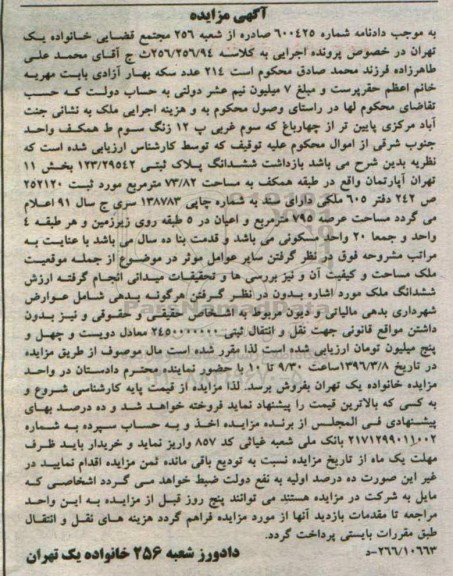 آگهی مزایده
به موجب دادنامه شماره ۶۰۰۴۲۵ صادره از شعبه ۲۵۶ مجتمع قضایی خانواده یک
تهران در خصوص پرونده اجرایی به کلاسه ۲۵۶/۲۵۶/۹۴ث ج آقای محمد علی
طاهرزاده فرزند محمد صادق محکوم است ۲۱۴ عدد سکه بهار آزادی بابت مهریه
خانم اعظم حقپرست و مبلغ ۷ میلیون نیم عشر دولتی به حساب دولت که حسب
تقاضای محکوم لها در راستای وصول محکوم به و هزینه اجرایی ملک به نشانی جنت
آباد مرکزی پایین تر از چهارباغ که سوم غربی پ ۱۲ زنگ سوم ط همکف واحد
جنوب شرقی از اموال محکوم علیه توقیف که توسط کارشناس ارزیابی شده است که
نظریه بدین شرح می باشد بازداشت ششدانگ پلاک ثبتی ۱۲۳/۲۹۵۴۲ بخش ۱۱
تهران آپارتمان واقع در طبقه همکف به مساحت ۷۳/۸۲ مترمربع مورد ثبت ۲۵۲۱۲۰
ص ۲۴۲ دفتر ۶۰۵ ملکی دارای سند به شماره چاپی ۱۳۸۷۸۳ سری ج سال ۹۱ اعلام
می گردد مساحت عرصه ۷۹۵ مترمربع و اعیان در ۵ طبقه روی زیرزمین و هر طبقه ۴
واحد و جمعا ۲۰ واحد مسکونی می باشد و قدمت بنا ده سال می باشد با عنایت به
مراتب مشروحه فوق در نظر گرفتن سایر عوامل موثر در موضوع از جمله موقعیت
ملک مساحت و کیفیت آن و نیز بررسی ها و تحقیقات میدانی انجام گرفته ارزش
ششدانگ ملک مورد اشاره بدون در نظر گرفتن هرگونه بدهی شامل عوارض
شهرداری بدهی مالیاتی و دیون مربوط به اشخاص حقیقی و حقوقی و نیز بدون
داشتن مواقع قانونی جهت نقل و انتقال ثبتی ۲۴۵۰۰۰۰۰۰۰ معادل دویست و چهل و
پنج میلیون تومان ارزیابی شده است لذا مقرر شده است مال موصوف از طریق مزایده
در تاریخ ۱۳۹۶/۳/۸ ساعت ۹/۳۰ تا ۱۰ با حضور نماینده محترم دادستان در واحد
مزایده خانواده یک تهران بفروش برسد. لذا مزایده از قیمت پایه کارشناسی شروع و
به کسی که بالاترین قیمت را پیشنهاد نماید فروخته خواهد شد و ده درصد بهای
پیشنهادی فی المجلس از برنده مزایده اخذ و به حساب سپرده به شماره
۲۱۷۱۲۹۹۰۱۱۰۰۲ بانک ملی شعبه غیاثی کد ۸۵۷ واریز نماید و خریدار باید ظرف
مهلت یک ماه از تاریخ مزایده نسبت به تودیع باقی مانده ثمن مزایده اقدام نمایید در
غیر این صورت ده درصد اولیه به نفع دولت ضبط خواهد می گردد اشخاصی که
مایل به شرکت در مزایده هستند می توانند پنج روز قبل از مزایده به این واحد
مراجعه تا مقدمات بازدید آنها از مورد مزایده فراهم گردد هزینه های نقل و انتقال
طبق مقررات بایستی پرداخت گردد.
۲۶۶/۱۰۶۶۳-د
دادورز شعبه ۲۵۶ خانواده یک تهران